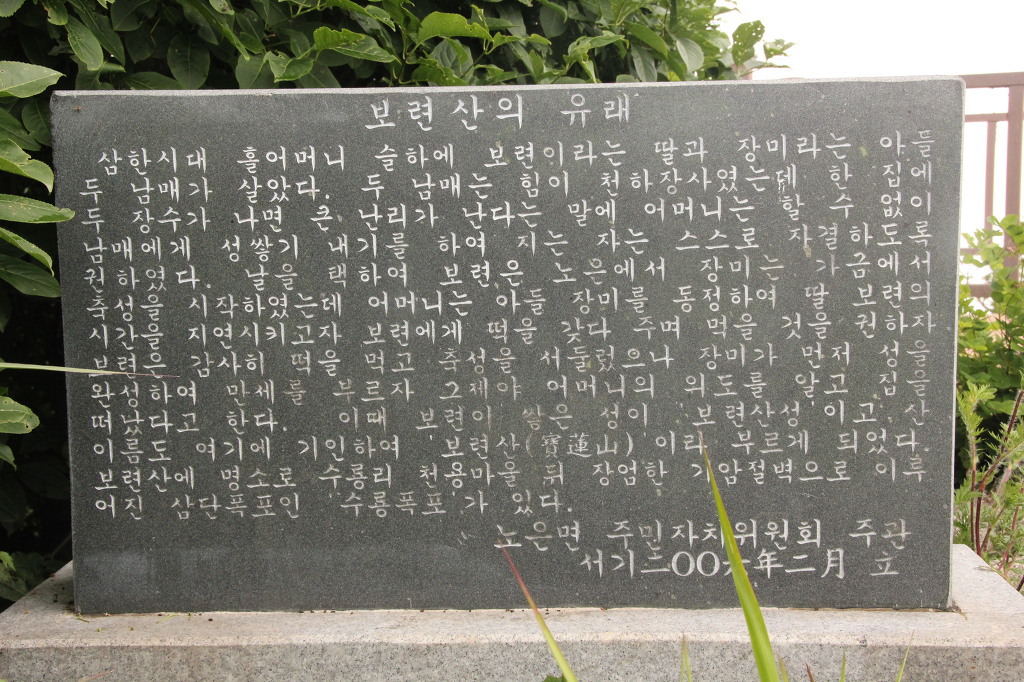 보련산의 유래
삼한시대 홀어머니 슬하에 보련이라는 딸과 장미라는 아들
두 남매가 살았다. 두 남매는 힘이 천하장사였는데 한 집에
두 장수가 나면 큰 난리가 난다는 말에 어머니는 할 수 없이
남매에게 성쌓기 내기를 하여 지는 자는 스스로 자결하도록
권하였다. 날을 택하여 보련은 노은에서 장미는 가금에서
축성을 시작하였는데 어머니는 아들 장미를 동정하여 딸 보련의
시간을 지연시키고자 보련에게 떡을 갖다 주며 먹을 것을 권하자
보련은 감사히 떡을 먹고 축성을 서둘렀으나 장미가 먼저 성을
완성하여 만세를 부르자 그제야 어머니의 의도를 알고 집을
떠났다고 한다. 이때 보련이 쌓은 성이 보련산성 이고 산
이름도 여기에 기인하여 보련산(寶蓮山) 이라 부르게 되었다.
보련산에 명소로 수룡리 천용마을 뒤 장엄한 기암절벽으로 이루
어진 삼단폭포인 수룡폭포가 있다.
노은면 주민자치위원회 주관
서기二OO六年二月 立